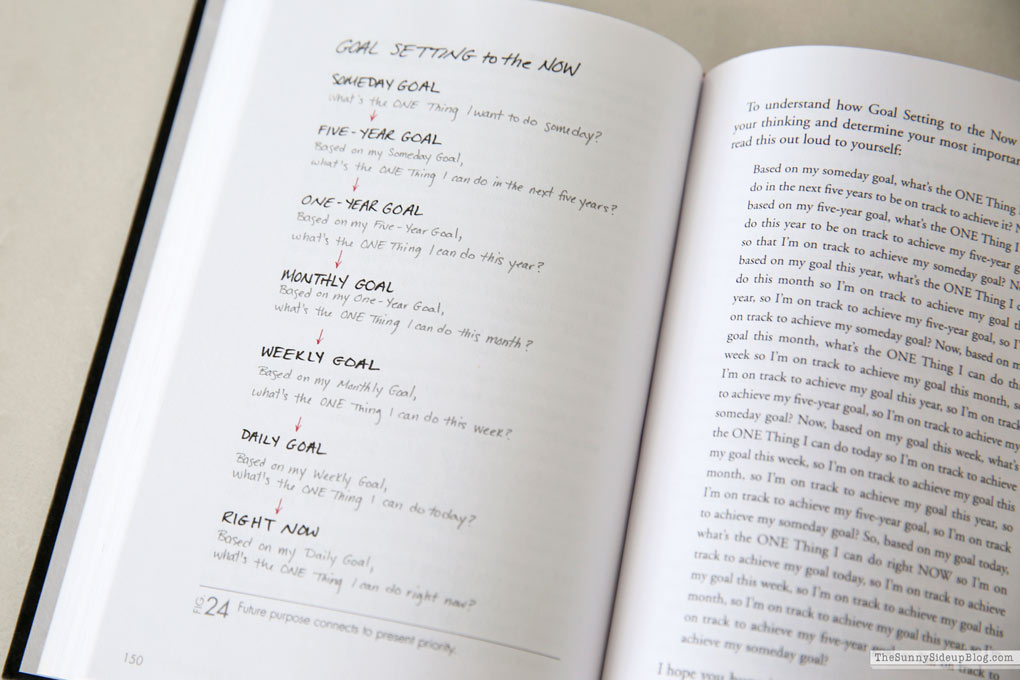 GOAL SETTING to the NOW
SOMEDAY GOAL
what's the ONE Thing I want to do someday?
FIVE-YEAR GOAL
Based on my Someday Goal,
what's the ONE Thing I can do in the next five years?
ONE-YEAR GOAL
Based on my Five-Year Goal,
what's the ONE Thing I can do this year?
MONTHLY GOAL
Based on my One-Year Goal,
what's the ONE Thing I can do this month?
WEEKLY GOAL
Based on my Monthly Goal,
what's the ONE Thing I can do this week?
DAILY GOAL
Based on my Weekly Goal,
what's the ONE Thing I can do today?
RIGHT NOW
Based on my Daily Goal,
what's the ONE Thing I can do right now?
FIG 24 Future purpose connects to present priority.
150
To understand how Goal Setting to the Now
your thinking and determine your most
read this out loud to yourself:
Based on my someday goal, what's the ONE Thing
do in the next five years to be on track to achieve it?
based on my five-year goal, what's the ONE Thing I
do this year to be on track to achieve my five-year
so that I'm on track to achieve my someday goal?
based on my goal this year, what's the ONE Thing I
do this month so I'm on track to achieve my goal
year, so I'm on track to achieve my five-year goal, so I'm
on track to achieve my someday goal? Now, based on my
goal this month, what's the ONE Thing I can do
week so I'm on track to achieve my goal this month, so
I'm on track to achieve my goal this year, so I'm on track
to achieve my five-year goal, so I'm on track to achieve my
someday goal? Now, based on my goal this week, what's
the ONE Thing I can do today so I'm on track to achieve
my goal this week, so I'm on track to achieve my goal this
month, so I'm on track to achieve my goal this year, so
I'm on track to achieve my five-year goal, so I'm on track
to achieve my someday goal? So, based on my goal today,
what's the ONE Thing I can do right NOW so I'm on
track to achieve my goal today, so I'm on track to achieve
my goal this week, so I'm on track to achieve my goal this
month, so I'm on track to achieve my goal this year, so I'm
on track to achieve my five-year goal, so I'm on track to
achieve my someday goal?
I hope you
TheSunnySideupBlog.com